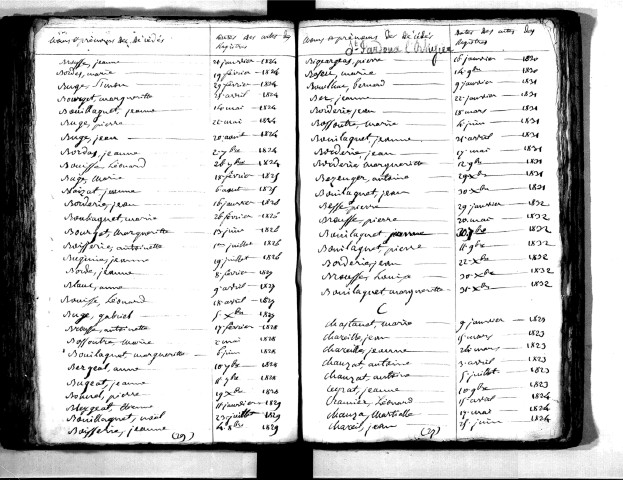 Noms & prénoms des Décédés Dates des actes des Registres
Brousse, jeanne 21 janvier 1824
Bordas, marie 19 février 1824
Buge, Simon 29 février 1824
Bourget, marguerite 21 avril 1824
Bouillaguet, jeanne 14 mai 1824
Buge, pierre 22 mai 1824
Buge, jean 20 août 1824
Bordas, jeanne 2 7bre 1824
Bouisse, Léonard 26 9bre 1824
Buge, Marie 18 février 1825
jeanne 6 août 1825
Borderie, jean 16 janvier 1826
Boulaguet, marie 26 février 1826
Bourget, marguerite 13 juin 1826
Boisserie, antoinette 1er juillet 1826
Bugenie, jeanne 19 juillet 1826
Borde, jeanne 8 février 1827
Blanc, anne 9 avril 1827
Bouisse, Léonard 18 avril 1827
Buge, gabriel 5 Xbre 1827
Brousse, antoinette 17 février 1828
Bossoutre, Marie 2 mai 1828
Bouilaguet, marguerite 6 juin 1828
Bergeal, anne 10 7bre 1828
Bugeat, jeanne 11 7bre 1828
Bonnel, pierre 29 Xbre 1828
Bleygeat, Etienne 11 janvier 1829
Bouillaguet, noel 23 juillet 1829
Boisserie, jeanne 4 8bre 1829
(29)
Noms & prénoms des Décédés Dates des actes des Registres
St Pardoux l'Ortigier
Bigeargeas, pierre 16 janvier 1830
marie 14 9bre 1830
Bouline, bernard 9 janvier 1831
jeanne 22 janvier 1831
Borderie, jean 18 mars 1831
Bossoutre, marie 14 juin 1831
Bouilaguet, jeanne 21 avril 1831
Borderie, jean 17 mai 1831
Borderie, marguerite 12 9bre 1831
Bezenger, antoine 29 Xbre 1831
Bouilaguet, jean 30 Xbre 1831
Besse, pierre 29 janvier 1832
Brousse, pierre 20 mai 1832
Bouilaguet 1832
Bouilaguet, pierre 11 9bre 1832
Borderie, jean 22 Xbre 1832
Brousse, Louise 30 Xbre 1832
Bouilaguet, marguerite 31 Xbre 1832
C
Chastanet, marie 9 janvier 1823
Chareille, jean 15 mars 1823
Chareille, jeanne 26 mars 1823
Chauzat, antoine 3 avril 1823
Chauzat, antoine 5 juillet 1823
Ceyrat, jeanne 10 9bre 1823
Léonard 15 avril 1824
Chauza, Martialle 17 mai 1824
Chareil, jean 25 juin 1824
(29)